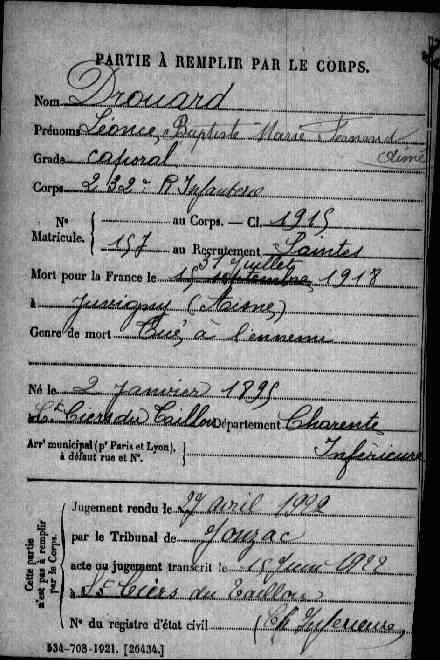 PARTIE À REMPLIR PAR LE CORPS.
Nom Drouard
Prénoms Léonce, Baptiste Marie Fernand
Aimé
Grade caporal
Corps 232e R Infanterie
N° Matricule. { au Corps. — Cl. 1915
157 au Recrutement Saintes
31 Juillet
Mort pour la France le 15 septembre 1918
à Juvigny (Aisne)
Genre de mort Tué, à l'ennemi
Né le 2 Janvier 1895
à St Ciers du Taillon Département Charente
Inférieure
Arrt municipal (pr Paris et Lyon),
à défaut rue et N°.
Cette partie n'est pas à remplir par le Corps.
Jugement rendu le 27 avril 1922
par le Tribunal de Jonzac
acte ou jugement transcrit le 15 Juin 1922
à St Ciers du Taillon
N° du registre d'état civil (Ch Inférieure)
534-708-1921. [26434.]